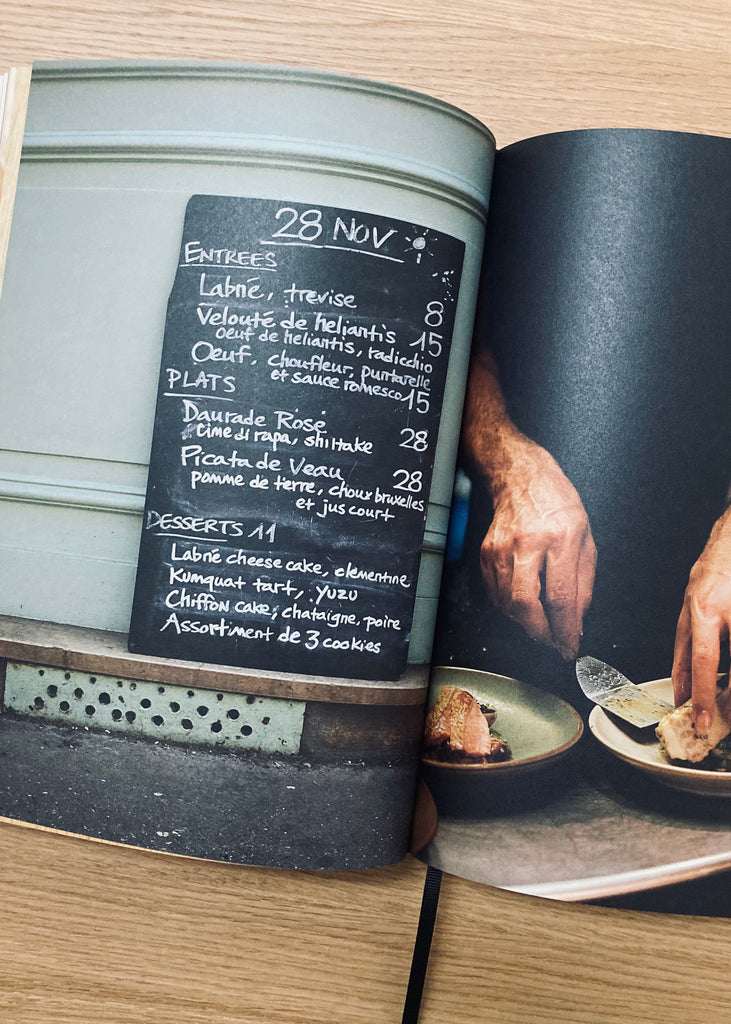 28 NOV
ENTREES
Labné, trevise 8
Velouté de heliantis 15
oeuf de heliantis, radicchio
Oeuf, choufleur, puntarelle
et sauce romesco 15
PLATS
Daurade Rosé 28
cime di rapa, shiitake
Picata de Veau 28
pomme de terre, choux bruxelles,
et jus court
DESSERTS 11
Labné cheese cake, clementine
Kumquat tart, yuzu
Chiffon cake, chataigne, poire
Assortiment de 3 cookies